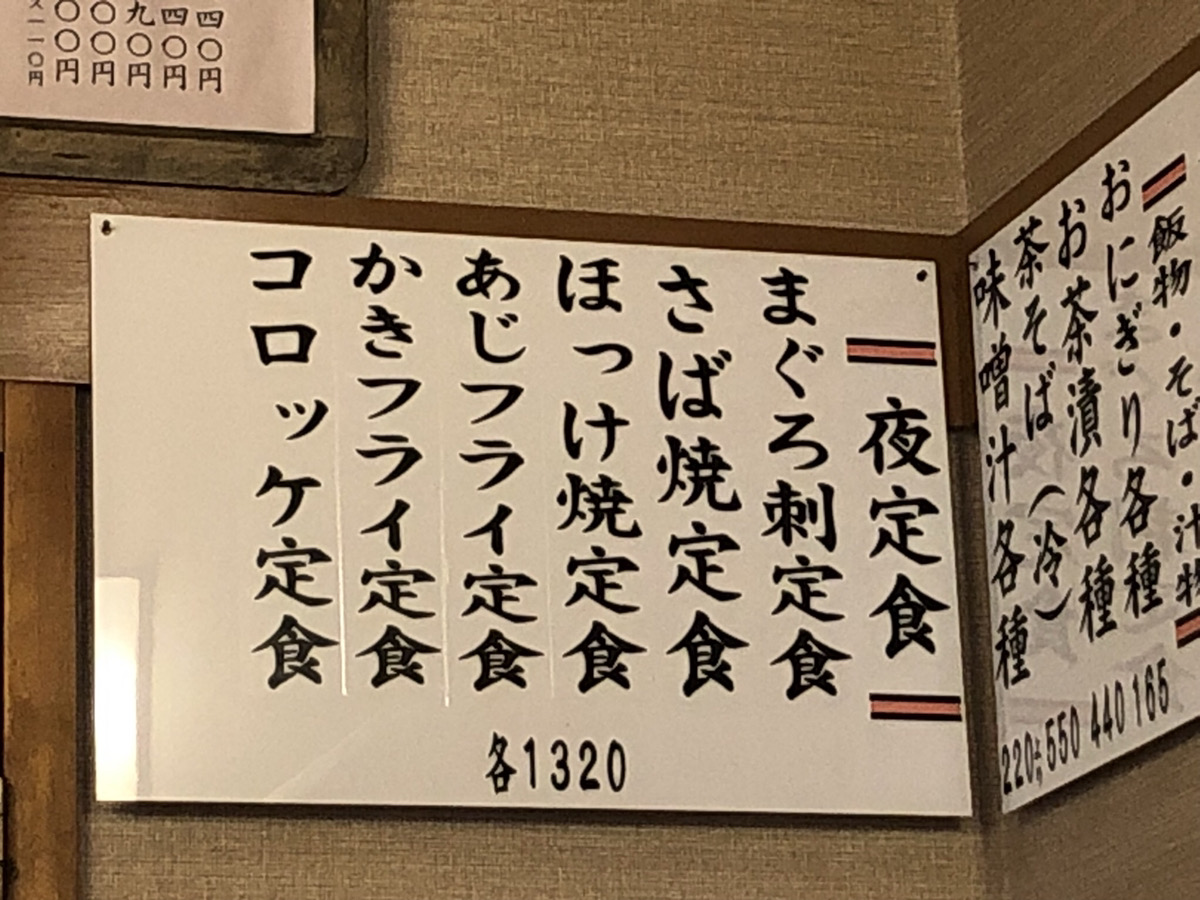 飯物・そば・汁物
おにぎり各種 165
お茶漬各種 440
茶そば(冷) 550
味噌汁各種 220より
夜定食
まぐろ刺定食
さば焼定食
ほっけ焼定食
あじフライ定食
かきフライ定食
コロッケ定食
各1320
四〇円
四〇〇円
九〇〇円
〇〇円
〇〇〇円
一一〇円